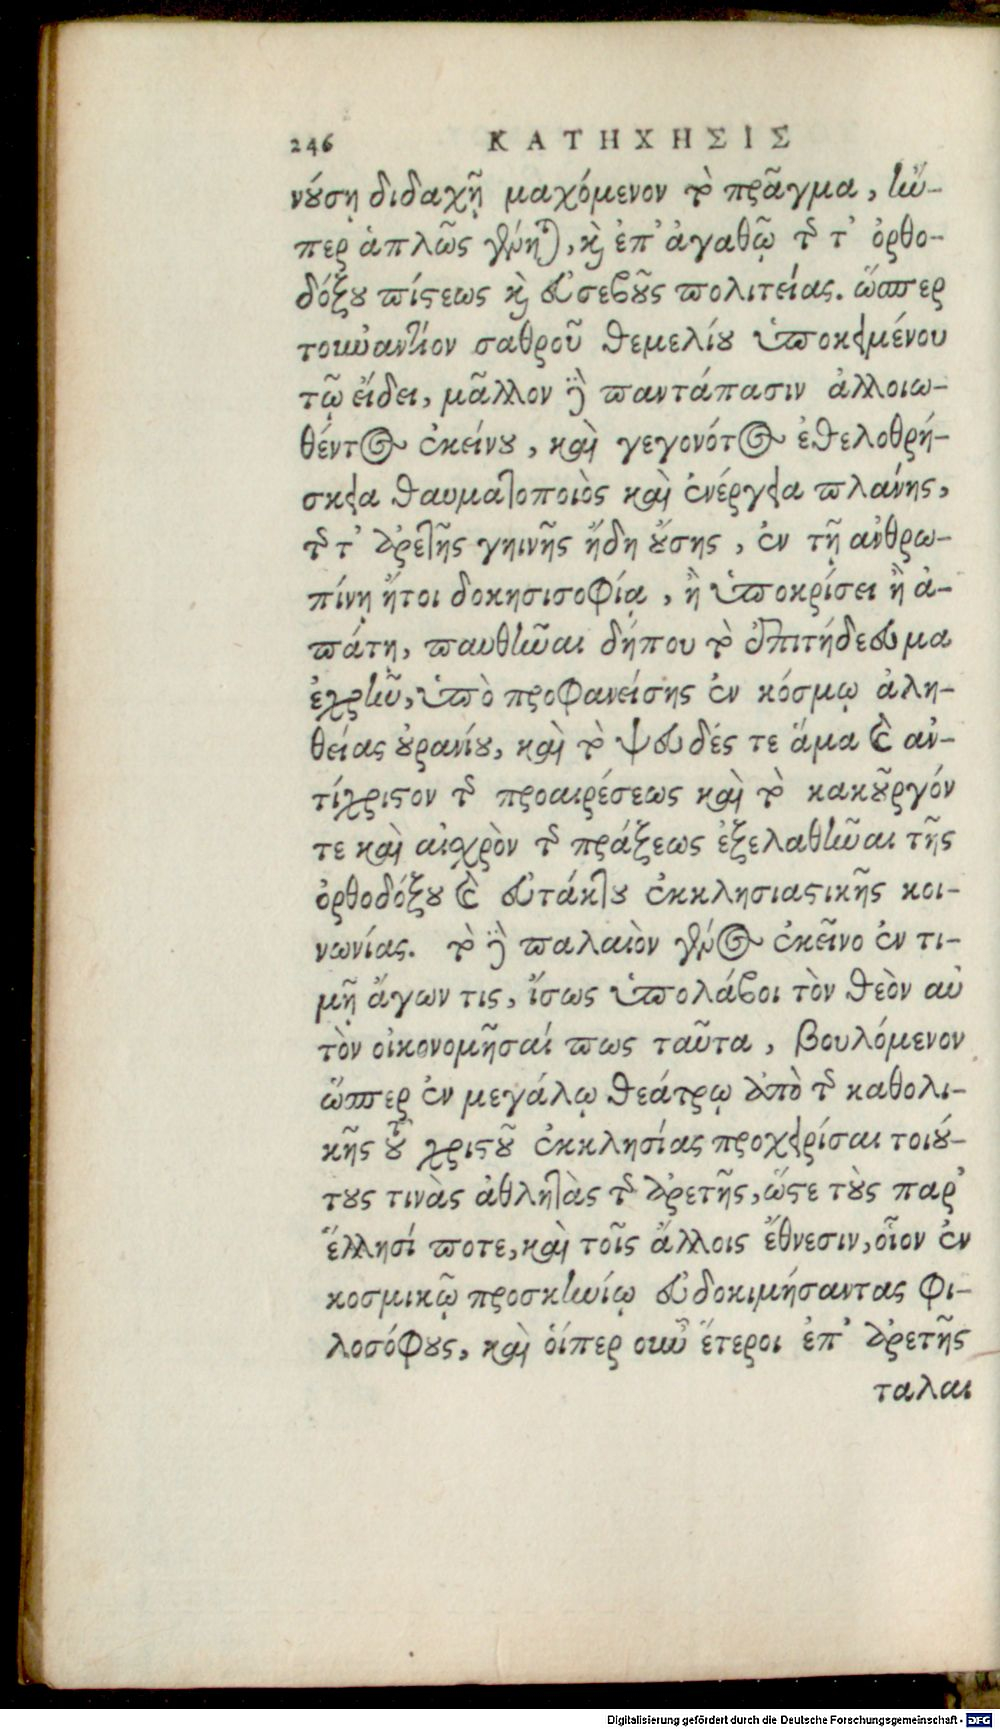 246 ΚΑΤΗΧΗΣΙΣ
νούσῃ διδαχῇ μαχόμενον τὸ πρᾶγμα, ἥν-
περ ἁπλῶς γένηται, καὶ ἐπ᾽ ἀγαθῷ τῆς τ᾽ ὀρθο-
δόξου πίστεως καὶ εὐσεβοῦς πολιτείας. ὥσπερ
τοὐναντίον σαθροῦ θεμελίου ὑποκειμένου
τῷ εἴδει, μᾶλλον δὲ παντάπασιν ἀλλοιω-
θέντος ἐκείνου, καὶ γεγονότος ἐθελοθρή-
σκεια θαυματοποιὸς καὶ ἐνέργεια πλάνης,
τῆς τ᾽ ἀρετῆς γηινῆς ἤδη οὔσης, ἐν τῇ ἀνθρω-
πίνῃ ἤτοι δοκησισοφίᾳ, ἢ ὑποκρίσει ἢ ἀ-
πάτῃ, παυθῆναι δήπου τὸ ἐπιτήδευμα
ἐχρῆν, ὑπὸ προφανείσης ἐν κόσμῳ ἀλη-
θείας οὐρανίου, καὶ τὸ ψευδές τε ἅμα καὶ ἀν-
τίχριστον τῆς προαιρέσεως καὶ τὸ κακοῦργόν
τε καὶ αἰσχρὸν τῆς πράξεως ἐξελαθῆναι τῆς
ὀρθοδόξου καὶ εὐτάκτου ἐκκλησιαστικῆς κοι-
νωνίας. τὸ δὲ παλαιὸν γένος ἐκεῖνο ἐν τι-
μῇ ἄγων τις, ἴσως ὑπολάβοι τὸν θεὸν αὐ
τὸν οἰκονομῆσαί πως ταῦτα, βουλόμενον
ὥσπερ ἐν μεγάλῳ θεάτρῳ ἀπὸ τῆς καθολι-
κῆς τοῦ χριστοῦ ἐκκλησίας προχειρίσαι τοιού-
τους τινὰς ἀθλητὰς τῆς ἀρετῆς, ὥστε τοὺς παρ᾽
ἕλλησί ποτε, καὶ τοῖς ἄλλοις ἔθνεσιν, οἷον ἐν
κοσμικῷ προσκηνίῳ εὐδοκιμήσαντας φι-
λοσόφους, καὶ οἵπερ οὖν ἕτεροι ἐπ᾽ ἀρετῆς
ταλαι
Digitalisierung gefördert durch die Deutsche Forschungsgemeinschaft - DFG